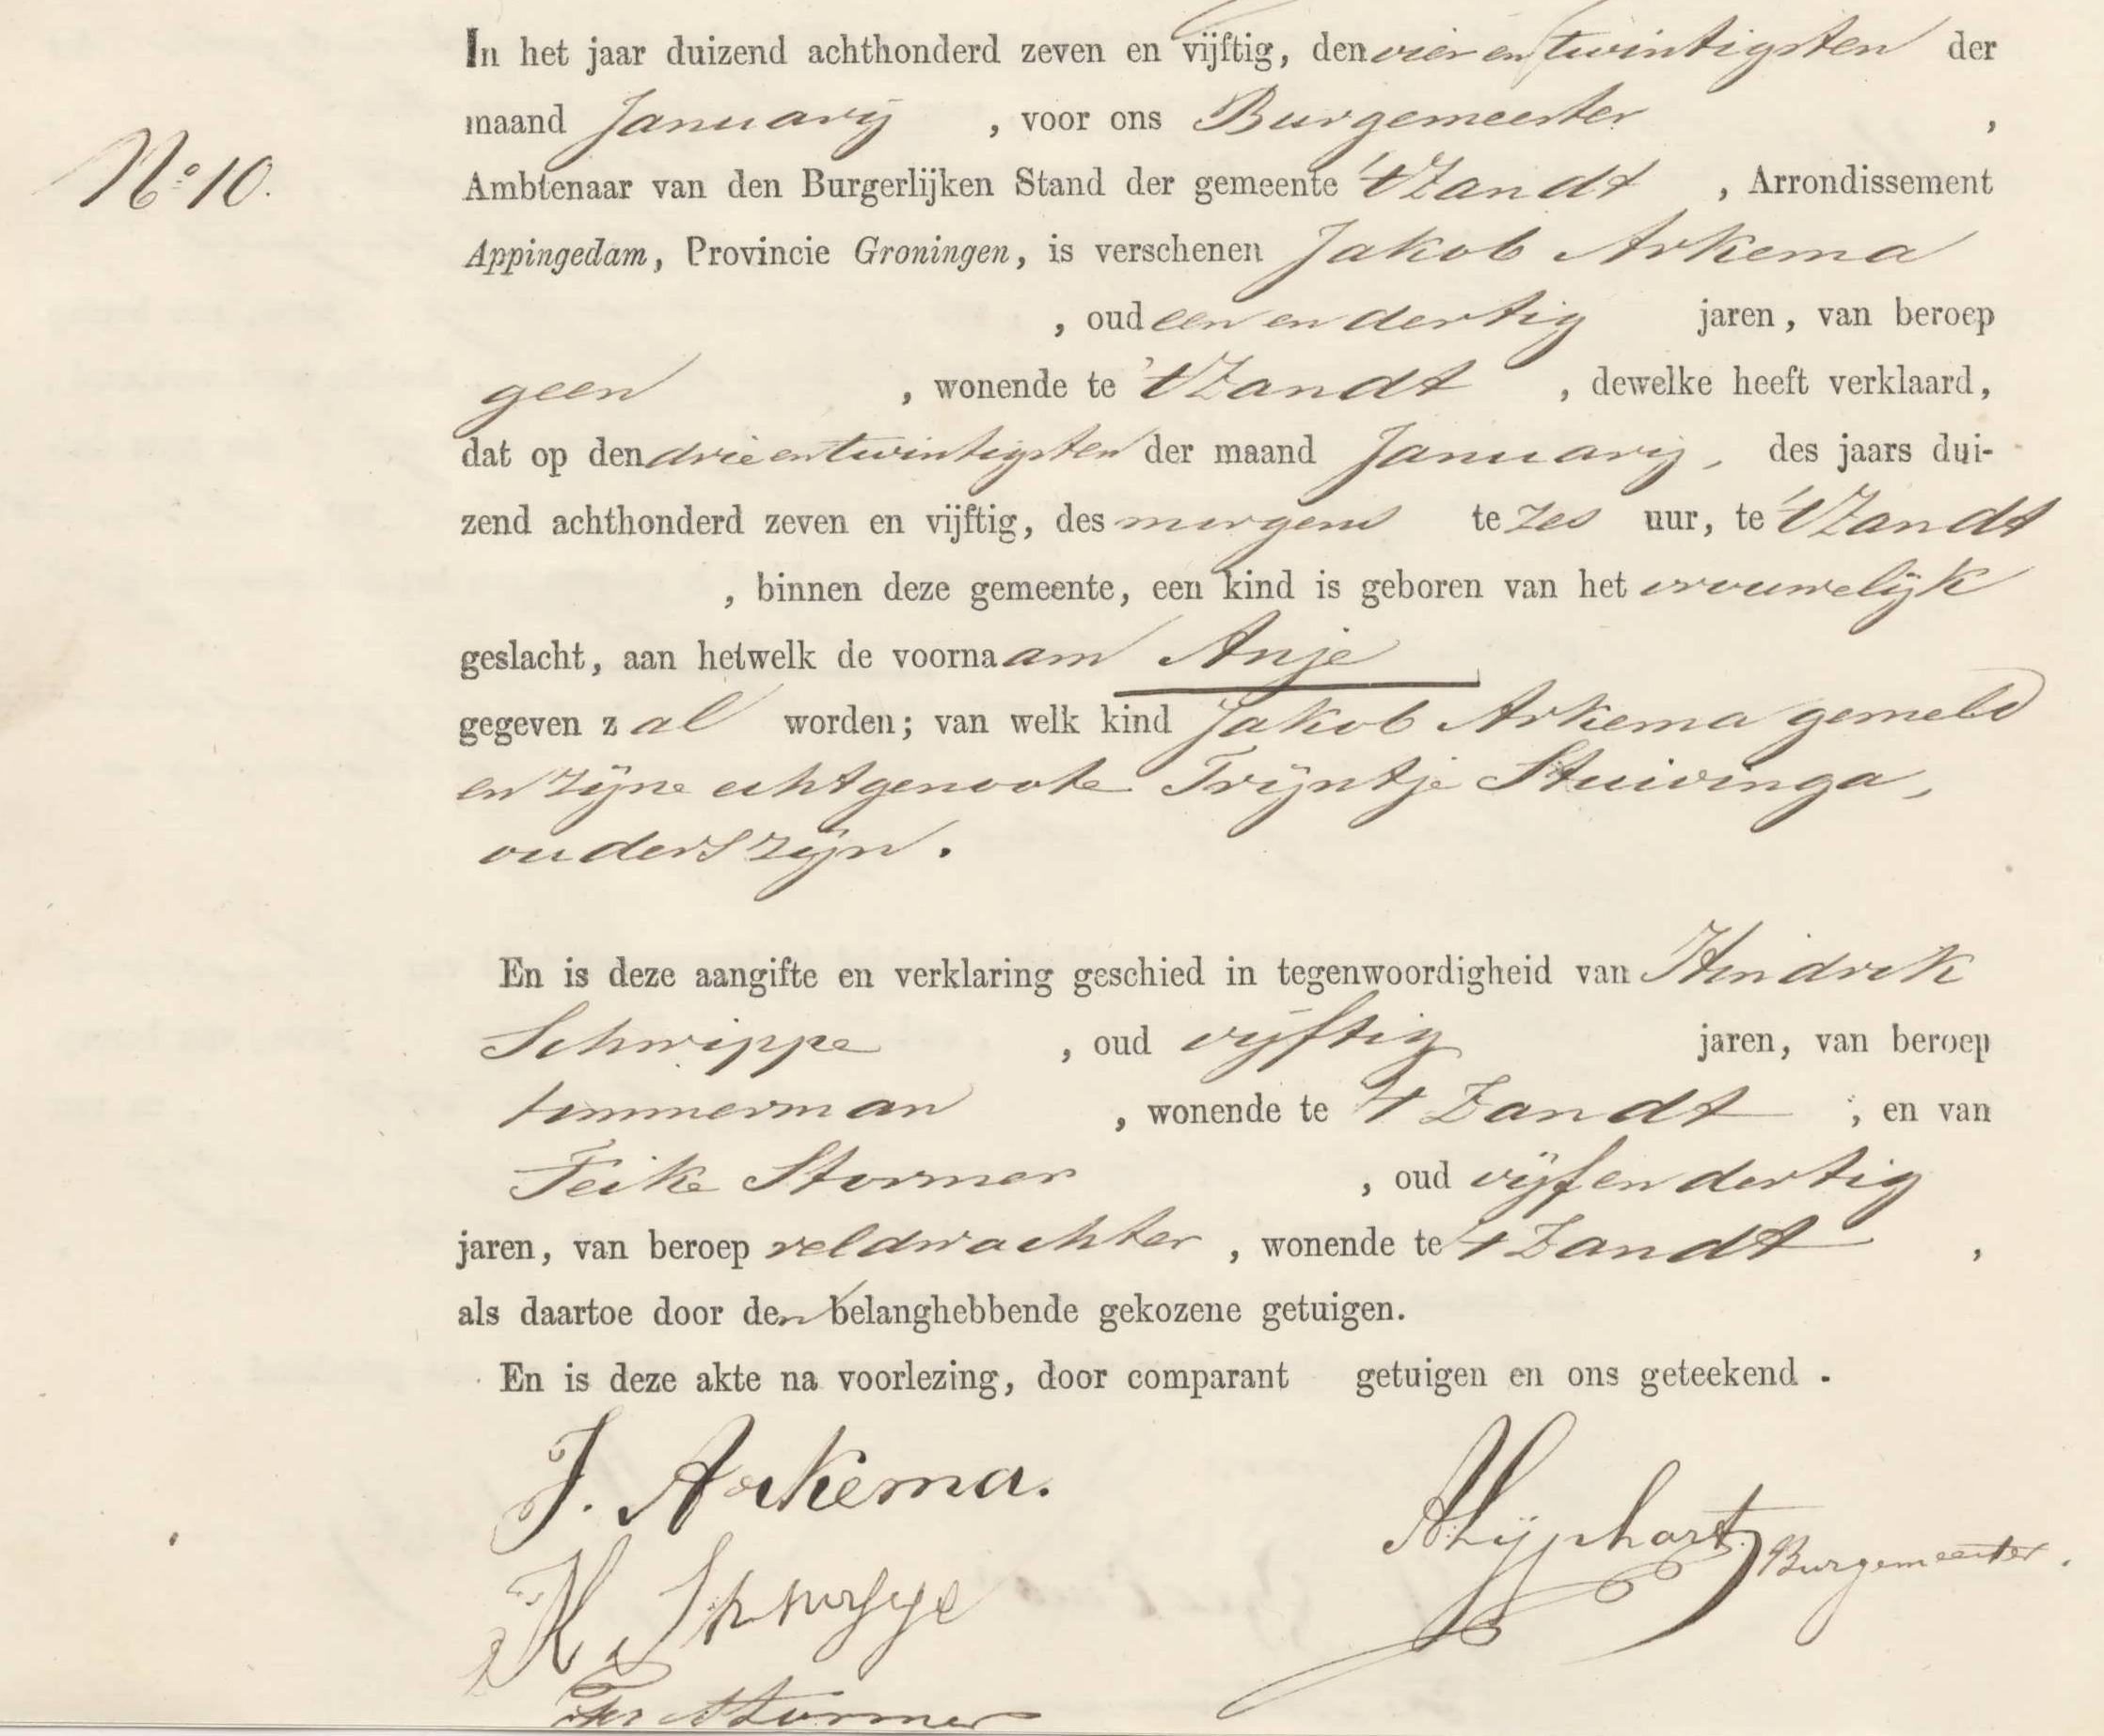 In het jaar duizend achthonderd zeven en vijftig, den vier en twintigsten der
maand Januarij , voor ons Burgemeester ,
No 10.
Ambtenaar van den Burgerlijken Stand der gemeente 't Zandt , Arrondissement
Appingedam, Provincie Groningen, is verschenen Jakob Arkema
, oud een en dertig jaren, van beroep
geen , wonende te 't Zandt , dewelke heeft verklaard,
dat op den drie en twintigsten der maand Januarij, des jaars dui-
zend achthonderd zeven en vijftig, des morgens te zes uur, te 't Zandt
, binnen deze gemeente, een kind is geboren van het vrouwelijk
geslacht, aan hetwelk de voornaam Anje
gegeven zal worden; van welk kind Jakob Arkema gemeld
en zijne echtgenoote Trijntje Stuivinga,
ouders zijn.
En is deze aangifte en verklaring geschied in tegenwoordigheid van Hindrik
Schwippe , oud vijftig jaren, van beroep
timmerman , wonende te 't Zandt , en van
Feike Stormer , oud vijf en dertig
jaren, van beroep veldwachter , wonende te 't Zandt ,
als daartoe door den belanghebbende gekozene getuigen.
En is deze akte na voorlezing, door comparant getuigen en ons geteekend .
J. Arkema.
Burgemeester.
H
Stormer